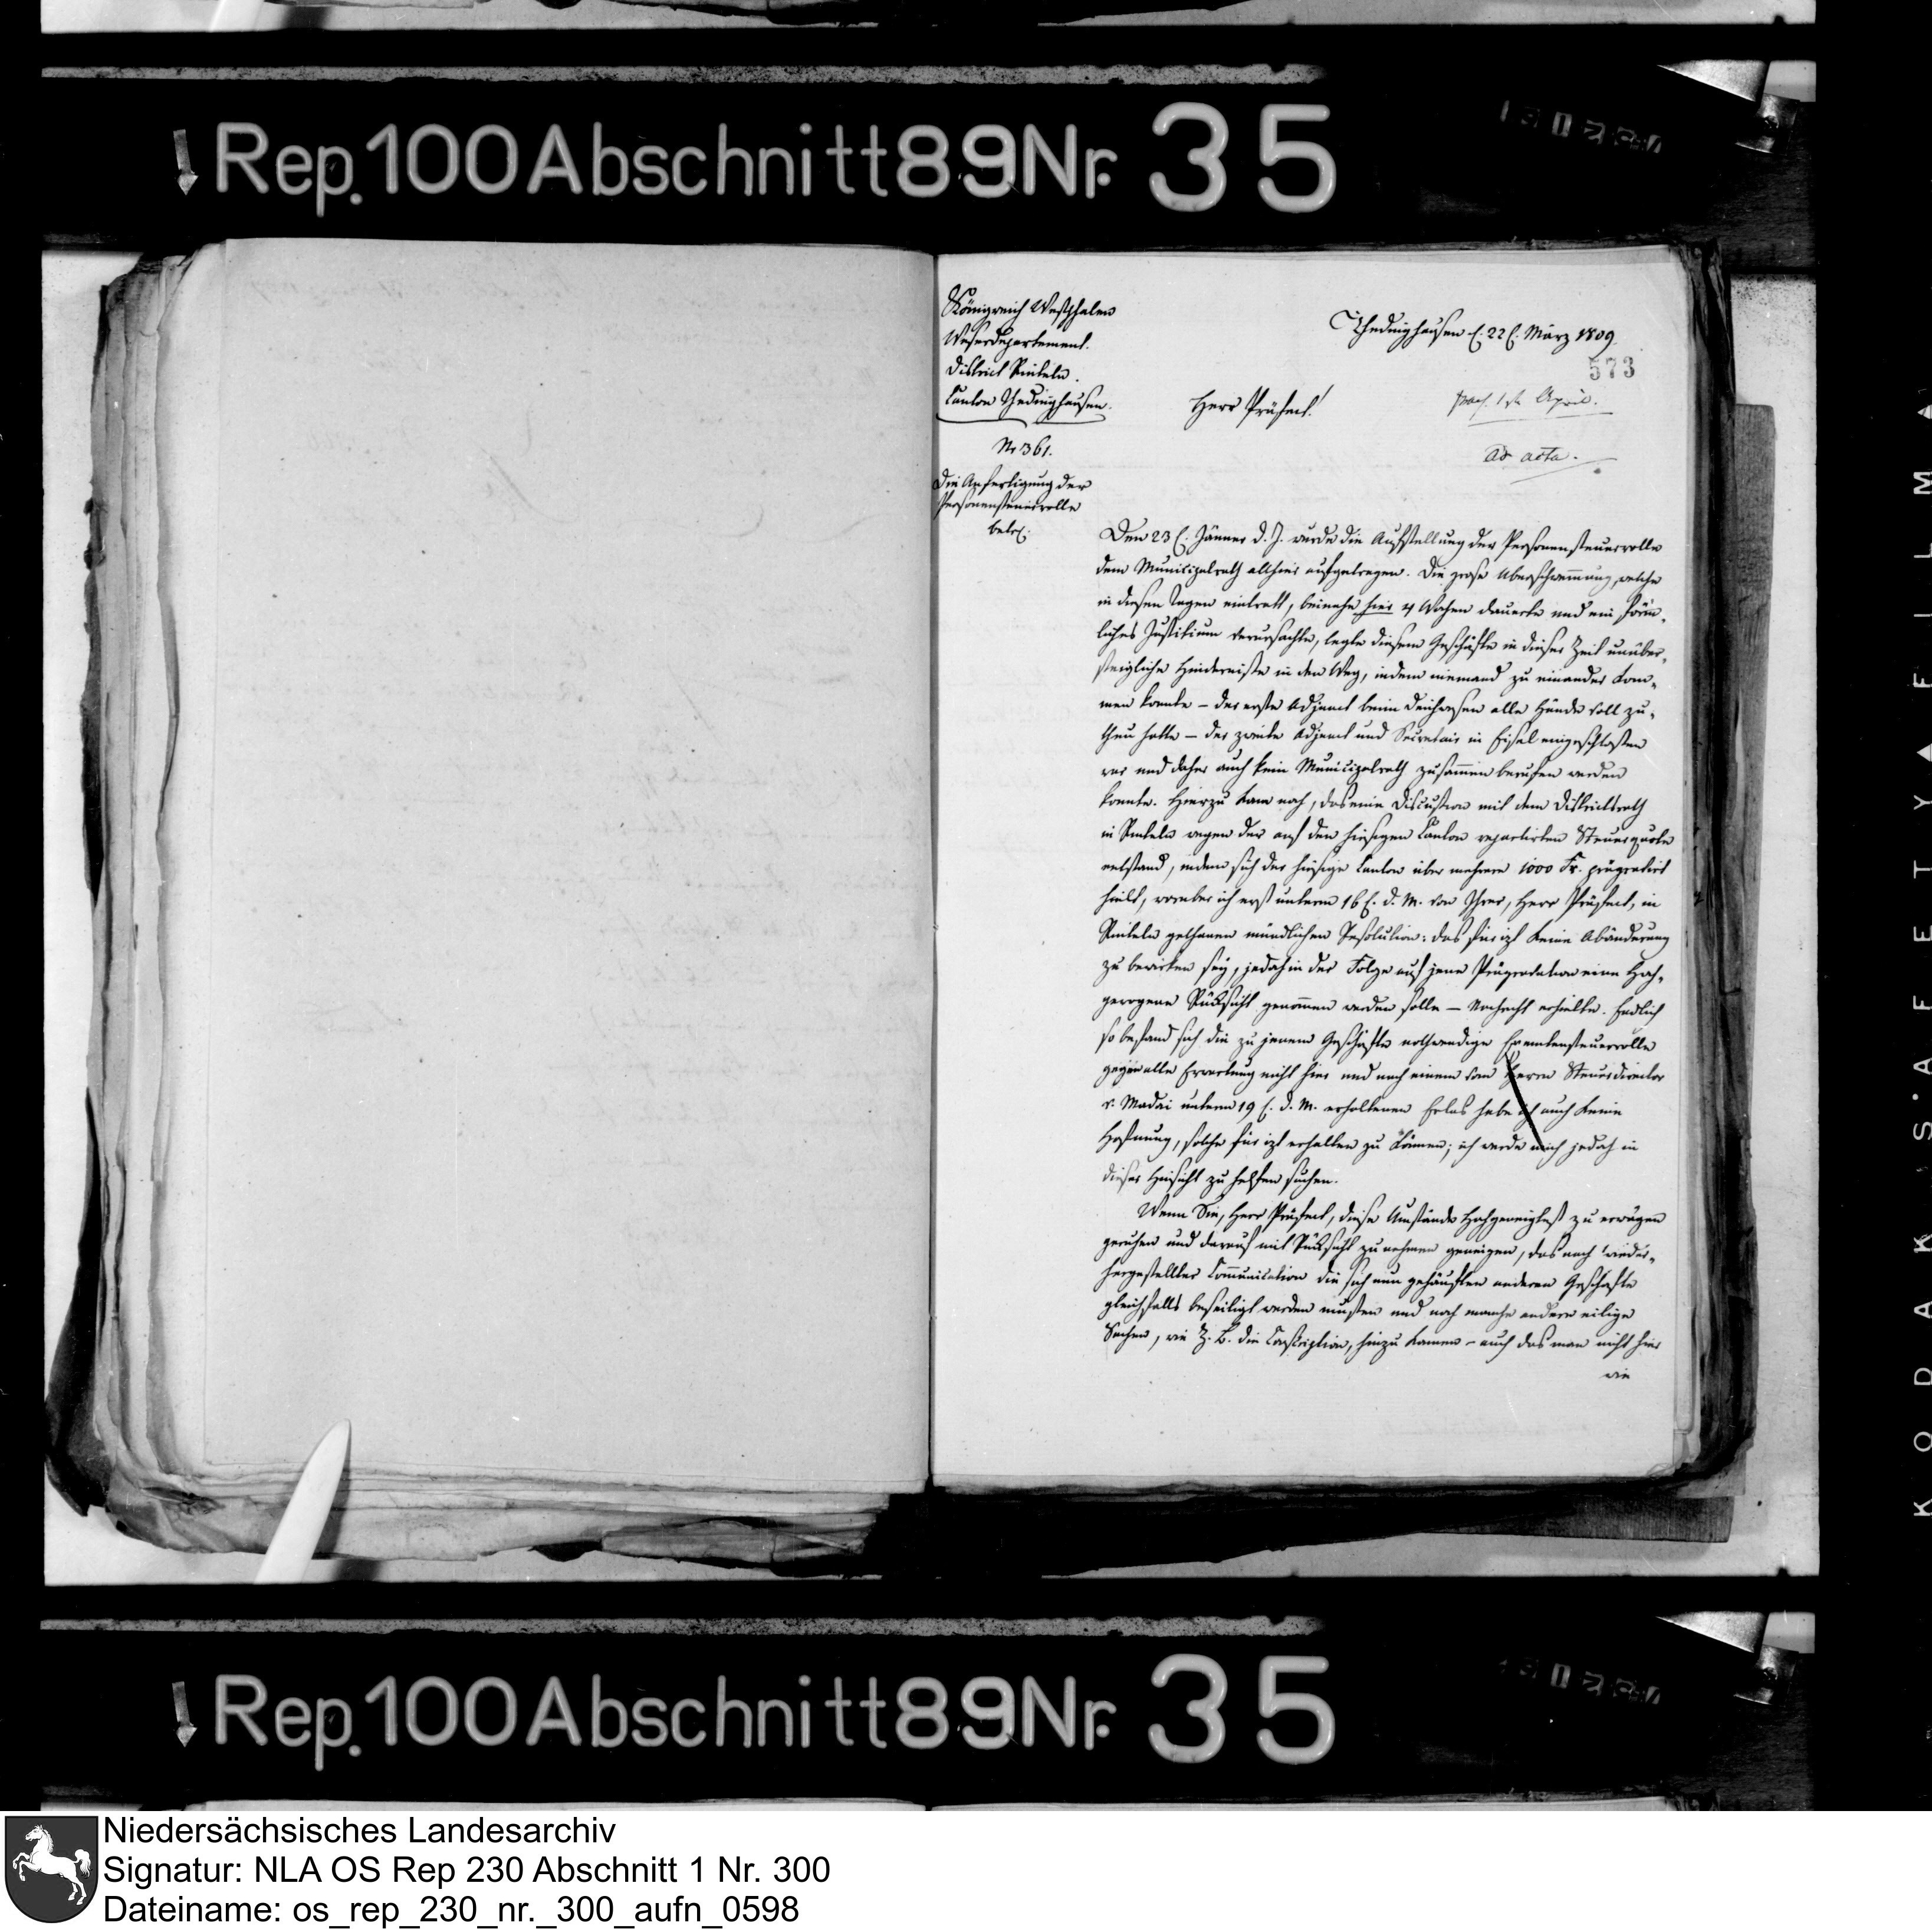 Rep. 100 Abschnitt 89 Nr. 35
Königreich Westphalen
Weserdepartement.
District Rinteln.
Canton Thedinghausen.
Nr 361.
Die Anfertigung der
Personensteuerrolle
betr.
Thedinghausen d. 22 t. März 1809.
573
Herr Präfect!
praes. 1st April.
ad acta.
Den 23 t. Jänner d. J. wurde die Aufstellung der Personensteuerrolle
dem Municipalrath allhier aufgetragen. Die große Überschwemmung, welche
in diesen Tagen eintratt, beinahe hier 4 Wochen dauerte und ein förm-
liches Justitium verursachte, legte diesem Geschäfte in dieser Zeit unüber-
steigliche Hindernisse in den Weg, indem niemand zu einander kom-
men konnte – der erste Adjunct beim Deichwesen alle Hände voll zu-
thun hatte – der zweite Adjunct und Secretair in Eisel eingeschlossen
war und daher auch kein Municipalrath zusammen berufen werden
konnte. Hierzu kam noch, das eine Discussion mit dem Districtsrath
in Rinteln wegen der auf den hiesigen Canton repartirten Steuerquote
entstand, indem sich der hiesige Canton über mehrere 1000 Fr. prägravirt
hielt, worüber ich erst unterm 16 t. d. M. von Ihrer, Herr Präfect, in
Rinteln gethanen mündlichen Resolution: das für izt keine Abänderung
zu bewirken sey, jedoch in der Folge auf jene Prägravation eine Hoch-
gewogene Rüksicht genommen werden solle – Nachricht erhielte. Endlich
so befand sich die zu jenem Geschäfte nothwendige Exemtensteuerrolle
gegen alle Erwartung nicht hier und nach einem vom Herrn Steuerdirector
v. Madai unterm 19 t. d. M. erhaltenen Erlas habe ich auch keine
Hofnung, solche für izt erhalten zu können; ich werde mich jedoch in
dieser Hinsicht zu helfen suchen.
Wenn Sie, Herr Präfect, diese Umstände Hochgeneigtest zu erwägen
geruhen und darauf mit Rüksicht zu nehmen geneigen, das nach wieder-
hergestellter Communication die sich nun gehäuften anderen Geschäfte
gleichfalls beseitigt werden musten und noch manche andere eilige
Sachen, wie z. B. die Conscription, hinzu kamen – auch das man nicht hier
wie
Rep. 100 Abschnitt 89 Nr. 35
KODAK SAFETY FILM
Niedersächsisches Landesarchiv
Signatur: NLA OS Rep 230 Abschnitt 1 Nr. 300
Dateiname: os_rep_230_nr._300_aufn_0598